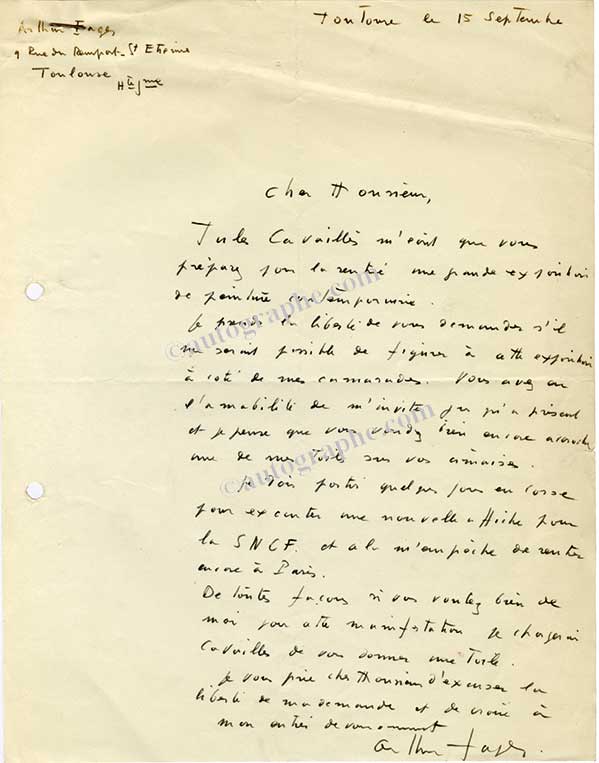 Toulouse le 15 Septembre
Arthur Fages
9 Rue du Rempart-St Etienne
Toulouse Hte Gne
Cher Monsieur,
Jules Cavaillès m'écrit que vous
préparez pour la rentrée une grande exposition
de peinture contemporaine.
Je prends la liberté de vous demander s'il
me serait possible de figurer à cette exposition
à coté de mes camarades. Vous avez eu
l'amabilité de m'inviter jusqu'à présent
et je pense que vous voudrez bien encore accrocher
une de mes toiles sur vos cimaises.
Je dois partir quelques jours en Corse
pour executer une nouvelle affiche pour
la SNCF. et cela m'empêche de rentrer
encore à Paris.
De toutes façons si vous voulez bien de
moi pour cette manifestation je chargerai
Cavailles de vous donner une Toile.
Je vous prie cher Monsieur d'excuser la
liberté de ma demande et de croire à
mon entier dévouement
Arthur Fages.
©autographe.com
©autographe.com